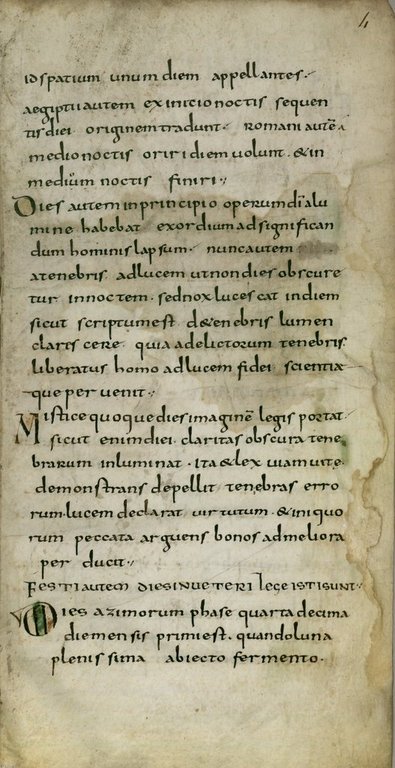 4
id spatium unum diem appellantes.
aegiptii autem ex inicio noctis sequen
tis diei originem tradunt. romani autē a
medio noctis oriri diem volunt. & in
medium noctis finiri.
Dies autem in principio operum dī a lu
mine habebat exordium ad significan
dum hominis lapsum. nunc autem
a tenebris ad lucem ut non dies obscure
tur in noctem. sed nox lucescat in diem
sicut scriptum est de tenebris lumen
clariscere. quia a delictorum tenebris
liberatus homo ad lucem fidei scientiæ
que pervenit.
Mistice quoque dies imaginē legis portat.
sicut enim diei claritas obscura tene
brarum inluminat. ita & lex viam vite
demonstrans depellit tenebras erro
rum. lucem declarat virtutum. & iniquo
rum peccata arguens bonos ad meliora
per ducit.
FESTI AUTEM DIES IN VETERI lege ISTI SUNT
Dies azimorum phase quarta decima
die mensis primi est. quando luna
plenissima abiecto fermento.